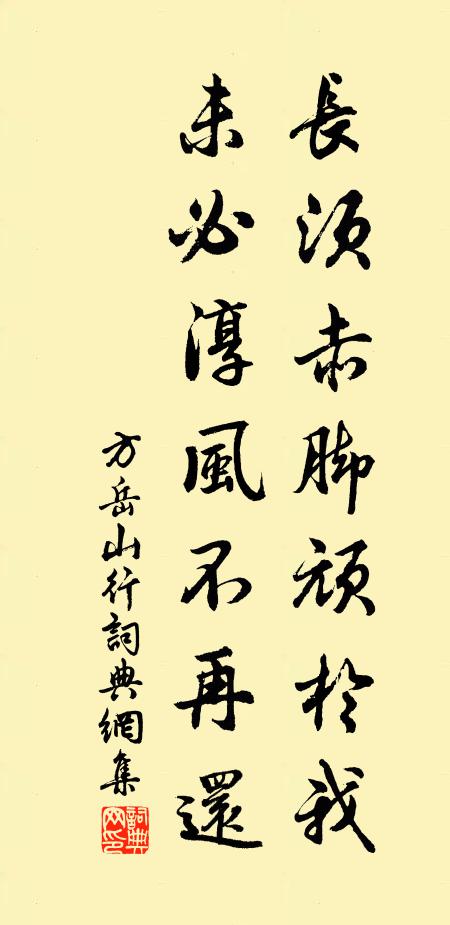 長須赤脚頑於我
未必淳風不再還
方岳山行詞典網集
詞典網印